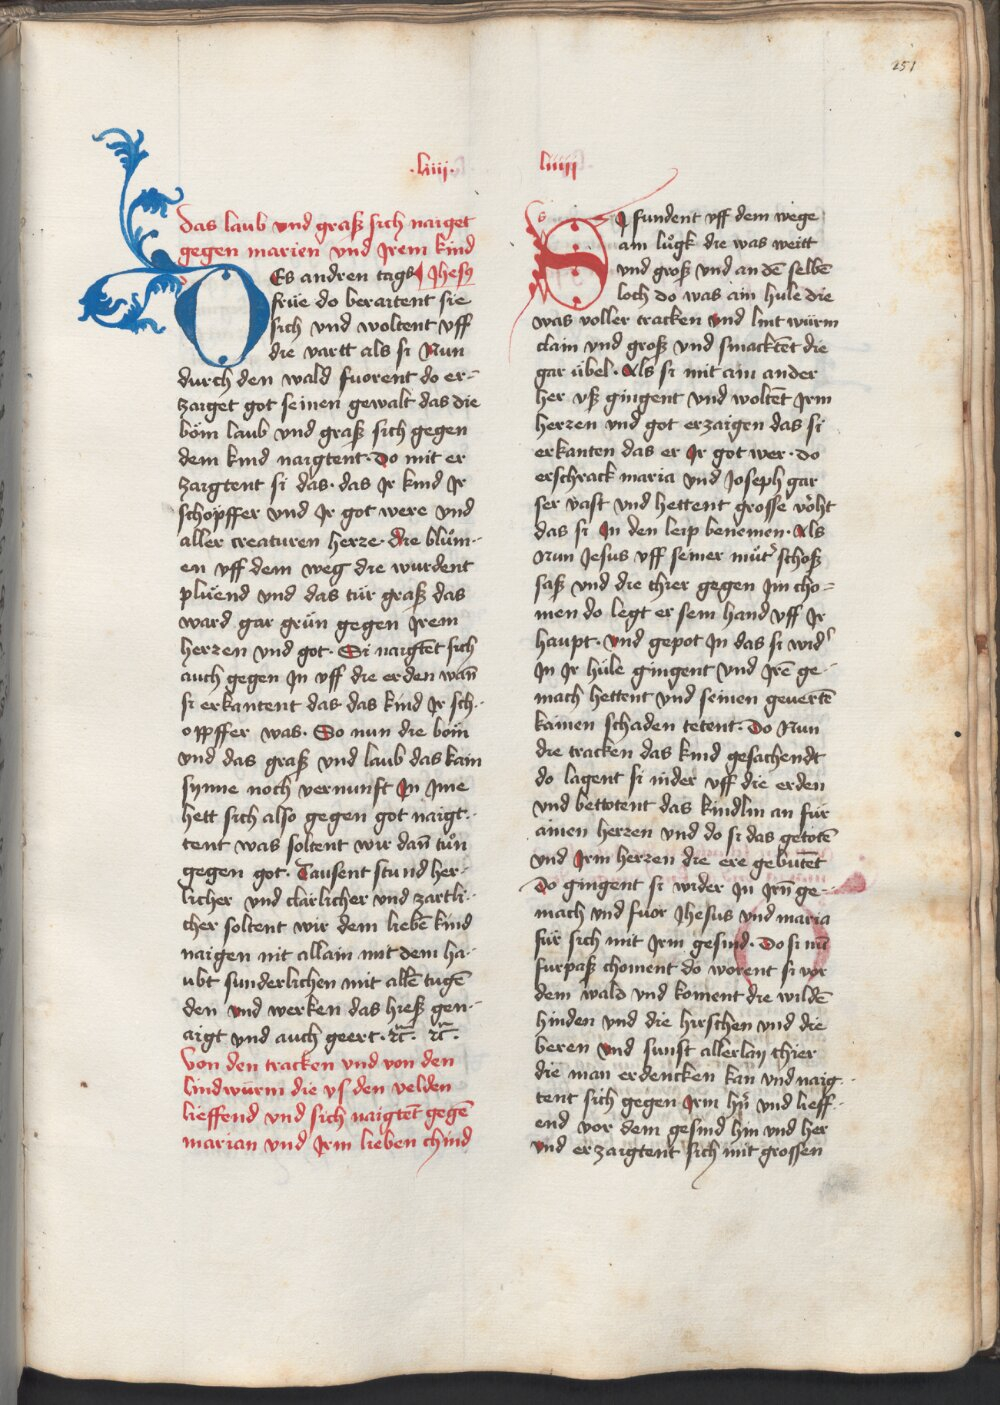 251
.liiii.
das laub vnd graß sich naiget
gegen marien vnd Jrem kind
Es andren tags Jhesꝫ
früe do beraitent sie
sich vnd woltent vff
die vartt als si Nun
durch den wald fuorent do er-
zaiget got seinen gewalt das die
böm laub vnd graß sich gegen
dem kind naigtent. Do mit er
zaigtent si das. das Jr kind Jr
schöpffer vnd Jr got were vnd
aller creaturen herze. die blům-
en vff dem weg die wurdent
plüend vnd das tür graß das
ward gar grün gegen Jrem
herzen vnd got. Si naigtēt sich
auch gegen Jn vff die erden wañ
si erkantent das das kind Jr sch-
opffer was. So nun die böm
vnd das graß vnd laub das kain
synne noch vernunft Jn Jme
hett sich also gegen got naigt-
tent was soltent wir dañ tůn
gegen got. Tausent stund her-
licher vnd clärlicher vnd zartli-
cher soltent wir dem liebē kind
naigen nit allain mit dem ha-
ubt sunderlichen mit allē tugē
den vnd werken das hieß gen-
aigt vnd auch geert. ꝛc̄. ꝛc̄.
von den tracken vnd von den
lindwürm die vs den velden
lieffend vnd sich naigtēt gegē
marian vnd Jrm lieben chind
liiiii
s
SJ fundent vff dem wege
ain lůgk die was weitt
vnd groß vnd an dē selbē
loch do was ain hule die
was voller tracken vnd lintwürm
clain vnd groß vnd smacktēt die
gar übel. Als si mit ain ander
her vß gingent vnd woltēt Jrm
herzen vnd got erzaigen das si
erkanten das er Jr got wer. do
erschrack maria vnd Joseph gar
ser vast vnd hettent grosse vöht
das si Jn den leip benemen. Als
Nun Jesus vff seiner můtˀ schoß
saß vnd die thier gegen Jm cho-
men do legt er sein hand vff Jr
haupt. vnd gepot Jn das si widˀ
Jn Jr hüle gingent vnd Jrē ge-
mach hettent vnd seinen geuertē
kainen schaden tetent. Do Nun
die tracken das kind gesachendt
do lagent si nider vff die erden
vnd bettotent das kindlin an für
ainen herzen vnd do si das getotē
vnd Jrm herzen die ere gebutēt
Do gingent si wider Jn Jrñ ge-
mach vnd fuor Jhesus vnd maria
für sich mit Jrm gesind. Do si nū
furpaß choment do worent si vor
dem wald vnd koment die wildē
hinden vnd die hirschen vnd die
beren vnd sunst allerlaij thier
die man erdencken kan vnd naig-
tent sich gegen Jrm hꝛ̄ vnd lieff-
end vor dem gesind hin vnd her
vnd erzaigtent sich mit grossen